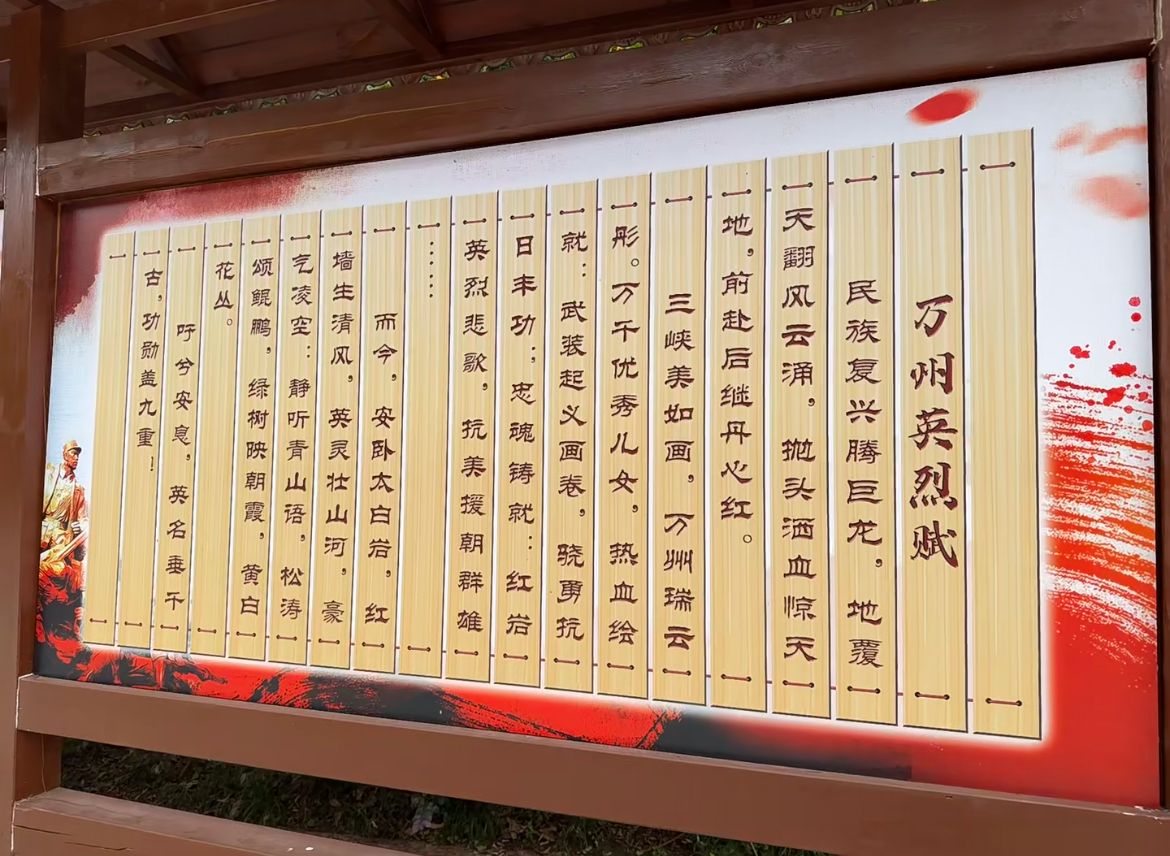 万州英烈赋
民族复兴腾巨龙，地覆
天翻风云涌，抛头洒血惊天
地，前赴后继丹心红。
三峡美如画，万州瑞云
彤。万千优秀儿女，热血绘
就：武装起义画卷，骁勇抗
日丰功；忠魂铸就：红岩
英烈悲歌，抗美援朝群雄
……
而今，安卧太白岩，红
墙生清风，英灵壮山河，豪
气凌空：静听青山语，松涛
颂鲲鹏，绿树映朝霞，黄白
花丛。
吁兮安息，英名垂千
古，功勋盖九重！